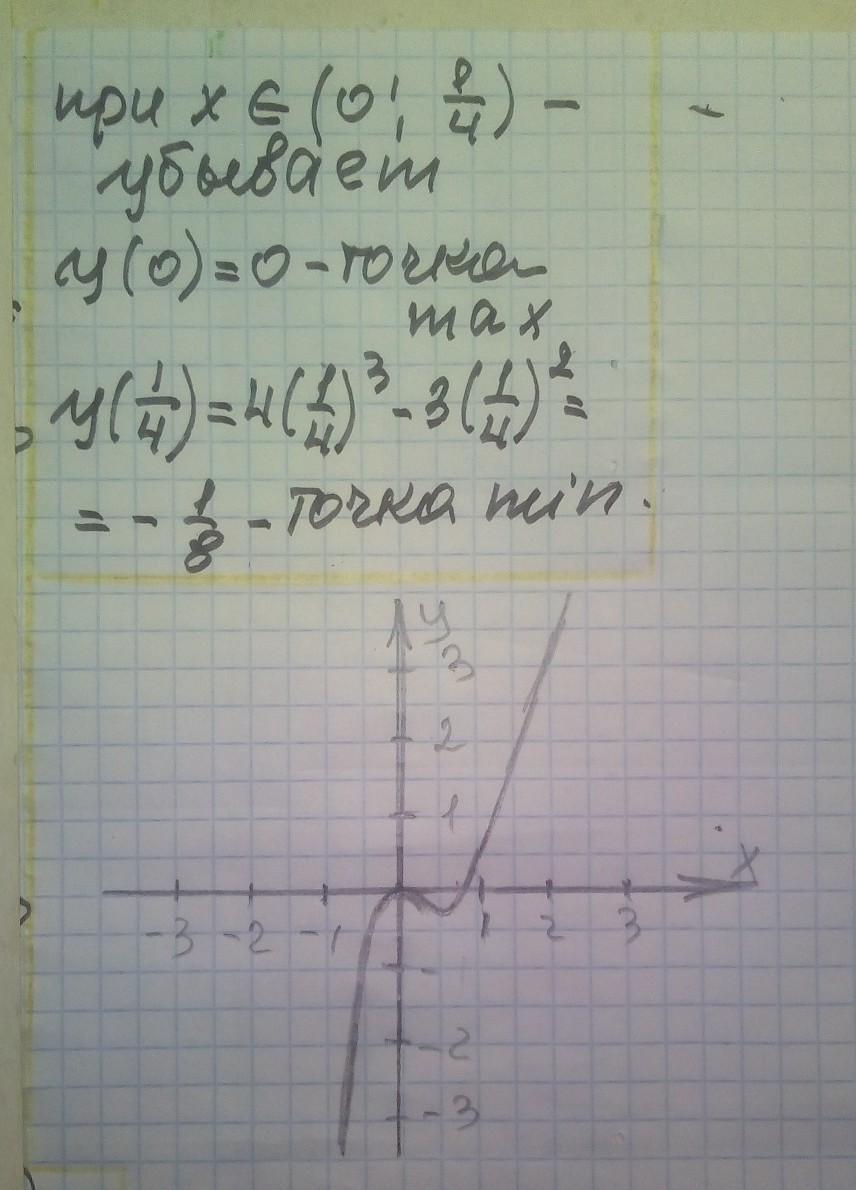 при x ∈ (0; 1/4) –
убывает
y(0)=0 – точка
max
y(1/4)=4(1/4)³-3(1/4)²=
= - 1/8 – точка min.
y
3
2
1
x
-3 -2 -1 1 2 3
-2
-3